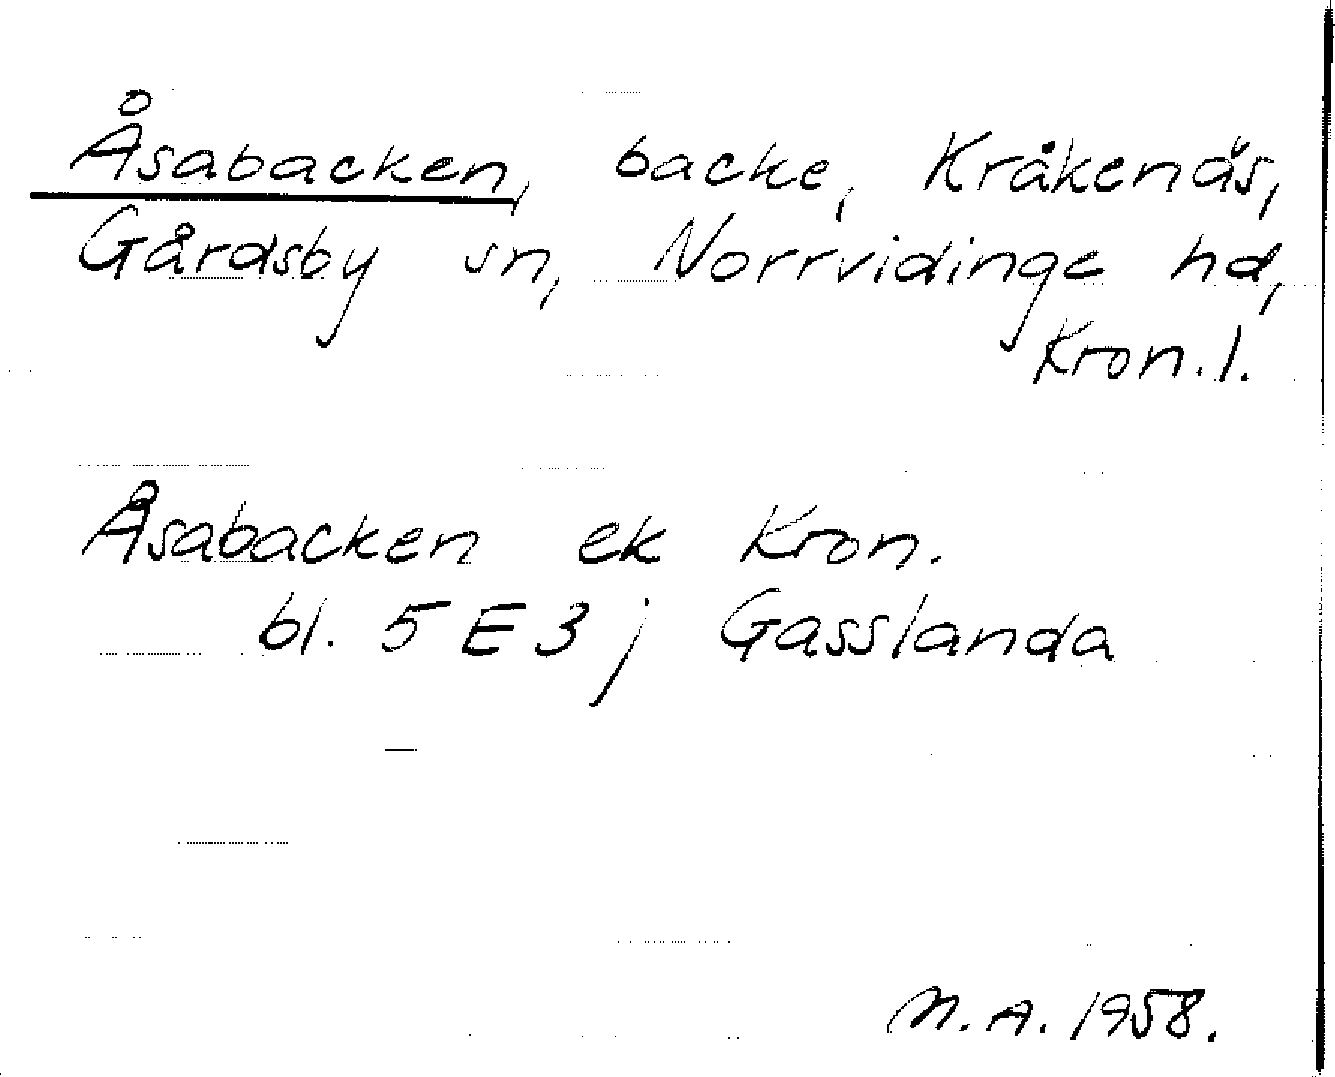 Åsabacken, backe, Kråkenäs,
Gårdsby sn, Norrvidinge hd,
Kron. l.
Åsabacken ek Kron.
bl. 5 E 3 j Gasslanda
M. A. 1958.